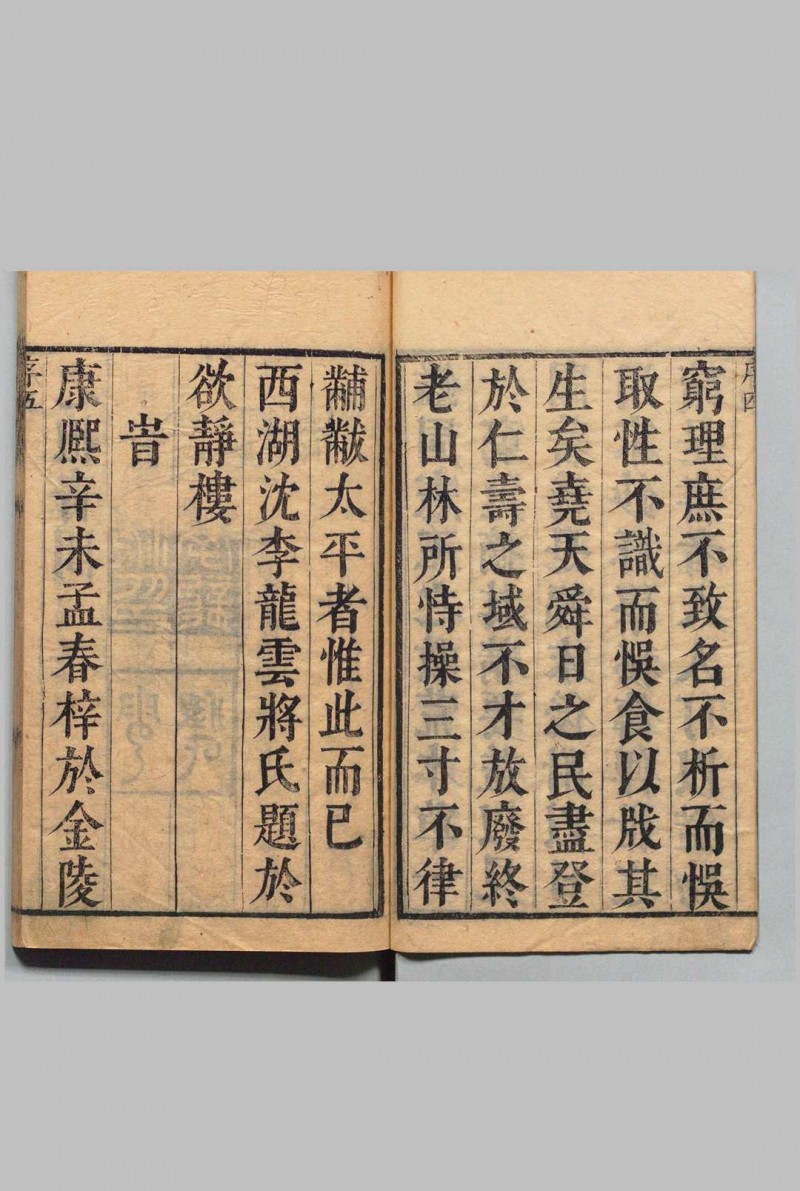 序四
窮理庶不致名不析而悞
取性不識而悞食以戕其
生矣堯天舜日之民盡登
於仁壽之域不才放廢終
老山林所恃操三寸不律
黼黻太平者惟此而已
西湖沈李龍雲將氏題於
欲靜樓
旹
康熙辛未孟春梓於金陵
序五